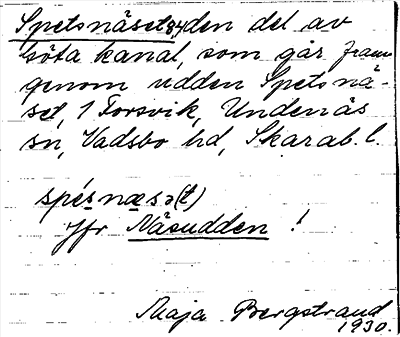 Spetsnäset, den del av
Göta kanal, som går fram
genom udden Spetsnä-
set, 1 Forsvik, Undenäs
sn, Vadsbo hd, Skarab. l.
spésnæsə(t)
Jfr Näsudden !
Maja Bergstrand
1930.